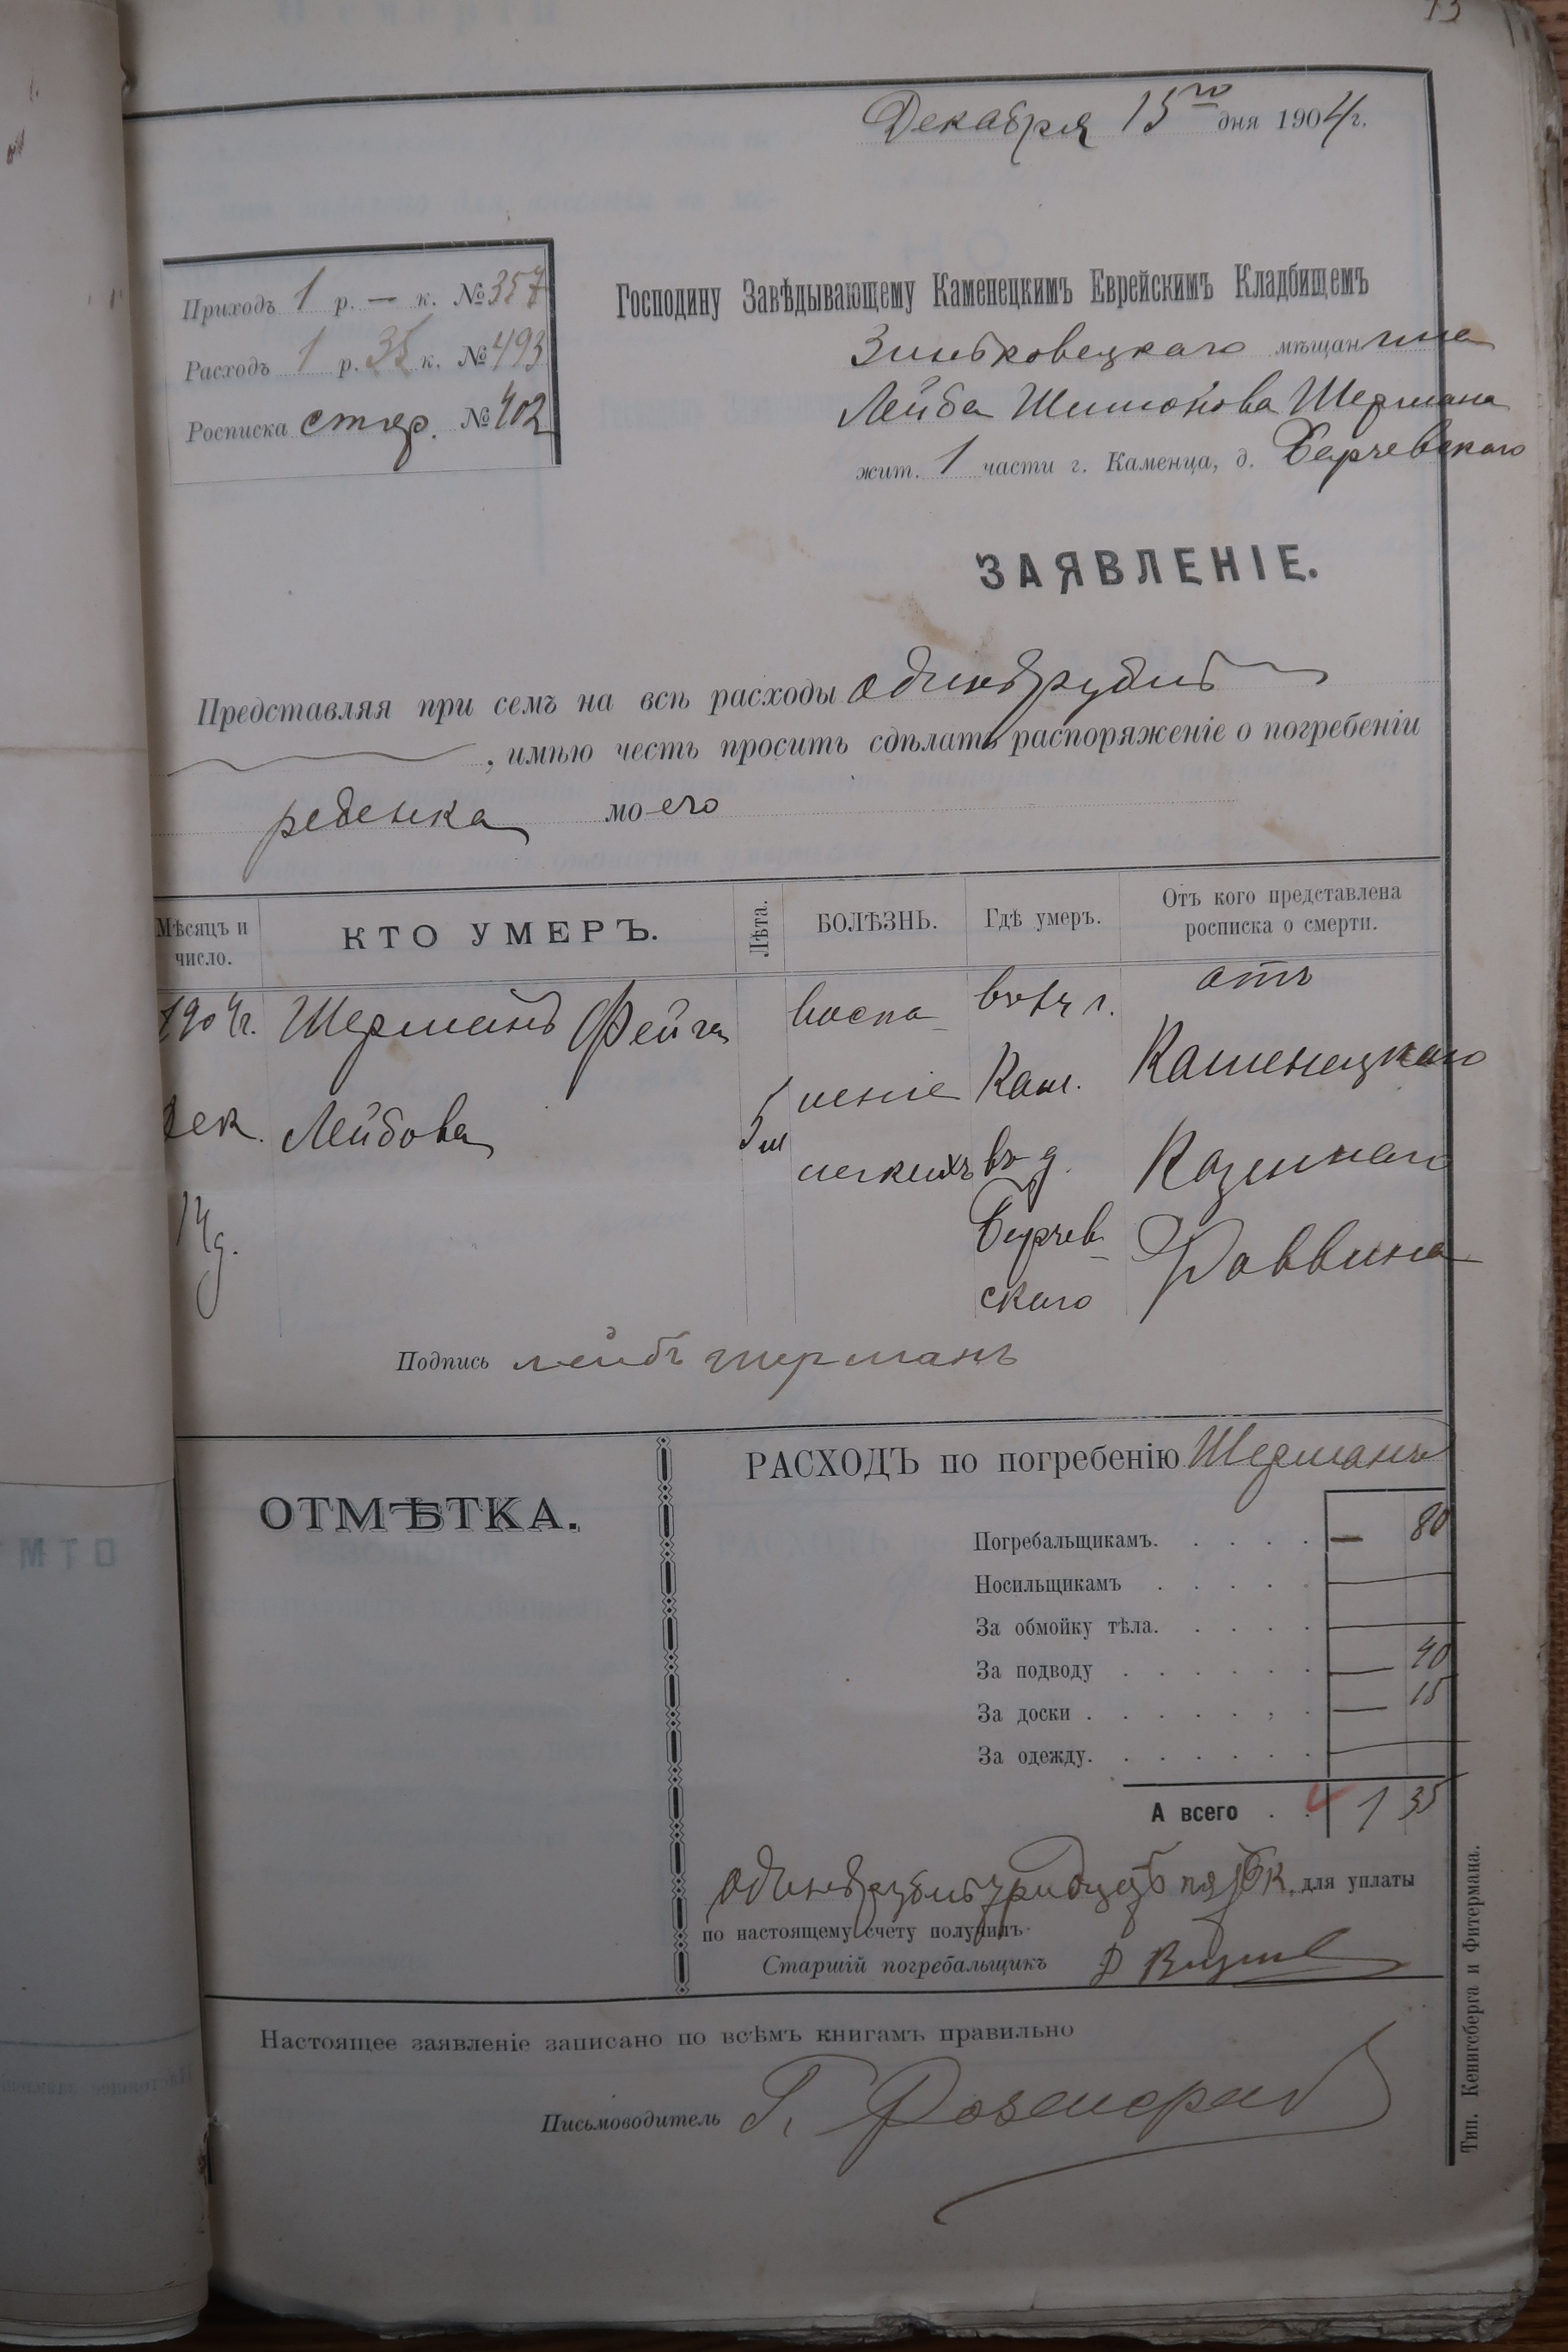 Декабря 15го дня 1904 г.
Приходъ 1 р. — к. № 357
Расходъ 1 р. 35 к. № 493
Росписка № 402
Господину Завѣдывающему Каменецкимъ Еврейскимъ Кладбищемъ
Зиньковецкаго мѣщанина
Лейба Шимонова Шермана
жит. 1 части г. Каменца, д. Барчевскаго
ЗАЯВЛЕНІЕ.
Представляя при семъ на всѣ расходы одинъ рубль
, имѣю честь просить сдѣлать распоряженіе о погребеніи
ребенка моего
Мѣсяцъ и число.
КТО УМЕРЪ.
Лѣта.
БОЛѢЗНЬ.
Гдѣ умеръ.
Отъ кого представлена росписка о смерти.
1904 г.
Дек.
14 д.
Шерманъ Фейга
Лейбова
5 м
воспа-
леніе
легкихъ
въ 1 ч г.
Кам.
въ д.
Барчев-
скаго
отъ
Каменецкаго
Казеннаго
Раввина
Подпись лейбъ шерманъ
ОТМѢТКА.
РАСХОДЪ по погребенію Шерманъ
Погребальщикамъ. . . . . — 80
Носильщикамъ . . . . . —
За обмойку тѣла. . . . . —
За подводу . . . . . . — 40
За доски . . . . . . . — 15
За одежду. . . . . . . —
А всего . . 1 35
одинъ рубль тридцать пять к. для уплаты
по настоящему счету получилъ
Старшій погребальщикъ
Настоящее заявленіе записано по всѣмъ книгамъ правильно
Письмоводитель Г.
Тип. Кенигсберга и Фитермана.